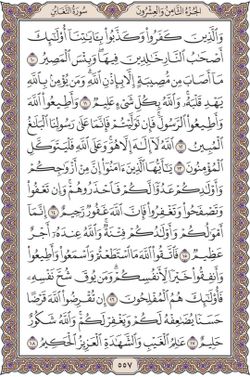 سُورَةُ التَّغَابُنِ الجُزْءُ الثَّامِنُ وَالعِشْرُونَ
وَالَّذِينَ كَفَرُوا وَكَذَّبُوا بِـَٔايَٰتِنَآ أُو۟لَٰٓئِكَ
أَصْحَٰبُ النَّارِ خَٰلِدِينَ فِيهَا وَبِئْسَ الْمَصِيرُ ١٠
مَآ أَصَابَ مِن مُّصِيبَةٍ إِلَّا بِإِذْنِ اللَّهِ وَمَن يُؤْمِنۢ بِاللَّهِ
يَهْدِ قَلْبَهُۥ وَاللَّهُ بِكُلِّ شَىْءٍ عَلِيمٌ ١١ وَأَطِيعُوا اللَّهَ
وَأَطِيعُوا الرَّسُولَ فَإِن تَوَلَّيْتُمْ فَإِنَّمَا عَلَىٰ رَسُولِنَا الْبَلَٰغُ
الْمُبِينُ ١٢ اللَّهُ لَآ إِلَٰهَ إِلَّا هُوَ وَعَلَى اللَّهِ فَلْيَتَوَكَّلِ
الْمُؤْمِنُونَ ١٣ يَٰٓأَيُّهَا الَّذِينَ ءَامَنُوٓا إِنَّ مِنْ أَزْوَٰجِكُمْ
وَأَوْلَٰدِكُمْ عَدُوًّا لَّكُمْ فَاحْذَرُوهُمْ وَإِن تَعْفُوا
وَتَصْفَحُوا وَتَغْفِرُوا فَإِنَّ اللَّهَ غَفُورٌ رَّحِيمٌ ١٤ إِنَّمَآ
أَمْوَٰلُكُمْ وَأَوْلَٰدُكُمْ فِتْنَةٌ وَاللَّهُ عِندَهُۥٓ أَجْرٌ
عَظِيمٌ ١٥ فَاتَّقُوا اللَّهَ مَا اسْتَطَعْتُمْ وَاسْمَعُوا وَأَطِيعُوا
وَأَنفِقُوا خَيْرًا لِّأَنفُسِكُمْ وَمَن يُوقَ شُحَّ نَفْسِهِۦ
فَأُو۟لَٰٓئِكَ هُمُ الْمُفْلِحُونَ ١٦ إِن تُقْرِضُوا اللَّهَ قَرْضًا
حَسَنًا يُضَٰعِفْهُ لَكُمْ وَيَغْفِرْ لَكُمْ وَاللَّهُ شَكُورٌ
حَلِيمٌ ١٧ عَٰلِمُ الْغَيْبِ وَالشَّهَٰدَةِ الْعَزِيزُ الْحَكِيمُ ١٨
٥٥٧